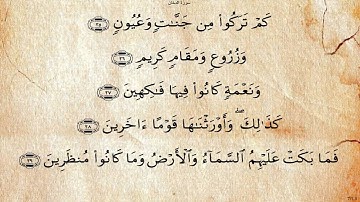 سورة الدخان
كَمْ تَرَكُوا۟ مِن جَنَّـٰتٍ وَعُيُونٍ ٢٥
وَزُرُوعٍ وَمَقَامٍ كَرِيمٍ ٢٦
وَنَعْمَةٍ كَانُوا۟ فِيهَا فَـٰكِهِينَ ٢٧
كَذَٰلِكَ ۖ وَأَوْرَثْنَـٰهَا قَوْمًا ءَاخَرِينَ ٢٨
فَمَا بَكَتْ عَلَيْهِمُ ٱلسَّمَآءُ وَٱلْأَرْضُ وَمَا كَانُوا۟ مُنظَرِينَ ٢٩